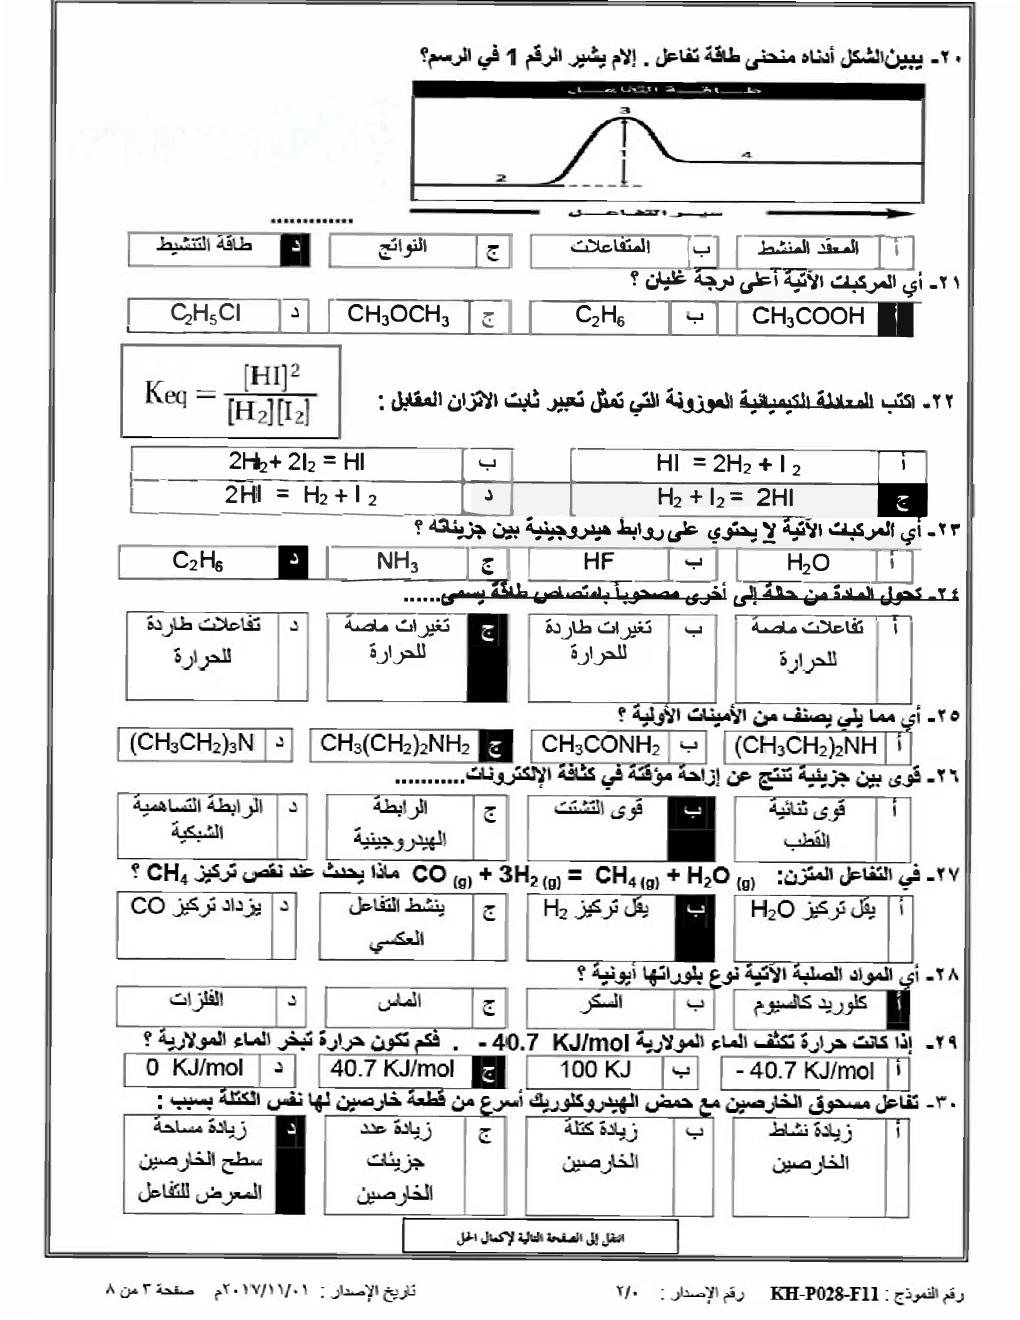 ٢٠- يبين الشكل أدناه منحنى طاقة تفاعل . إلام يشير الرقم 1 في الرسم؟
طاقة التفاعل
3
1
4
2
سير التفاعل
.............
أ المعقد المنشط ب المتفاعلات ج النواتج د طاقة التنشيط
٢١- أي المركبات الآتية أعلى درجة غليان ؟
أ CH₃COOH ب C₂H₆ ج CH₃OCH₃ د C₂H₅Cl
Keq = [HI]² / [H₂][I₂]
٢٢- اكتب المعادلة الكيميائية الموزونة التي تمثل تعبير ثابت الاتزان المقابل :
أ HI = 2H₂ + I ₂ ب 2H₂+ 2I₂ = HI
ج H₂ + I₂ = 2HI د 2HI = H₂ + I ₂
٢٣- أي المركبات الآتية لا يحتوي على روابط هيدروجينية بين جزيئاته ؟
أ H₂O ب HF ج NH₃ د C₂H₆
٢٤- تحول المادة من حالة إلى أخرى مصحوباً بامتصاص طاقة يسمى......
أ تفاعلات ماصة للحرارة ب تغيرات طاردة للحرارة ج تغيرات ماصة للحرارة د تفاعلات طاردة للحرارة
٢٥- أي مما يلي يصنف من الأمينات الأولية ؟
أ (CH₃CH₂)₂NH ب CH₃CONH₂ ج CH₃(CH₂)₂NH₂ د (CH₃CH₂)₃N
٢٦- قوى بين جزيئية تنتج عن إزاحة مؤقتة في كثافة الإلكترونات...........
أ قوى ثنائية القطب ب قوى التشتت ج الرابطة الهيدروجينية د الرابطة التساهمية الشبكية
٢٧- في التفاعل المتزن: CO (g) + 3H₂ (g) = CH₄ (g) + H₂O (g) ماذا يحدث عند نقص تركيز CH₄ ؟
أ يقل تركيز H₂O ب يقل تركيز H₂ ج ينشط التفاعل العكسي د يزداد تركيز CO
٢٨- أي المواد الصلبة الآتية نوع بلوراتها أيونية ؟
أ كلوريد كالسيوم ب السكر ج الماس د الفلزات
٢٩- إذا كانت حرارة تكثف الماء المولارية - 40.7 KJ/mol . فكم تكون حرارة تبخر الماء المولارية ؟
أ - 40.7 KJ/mol ب 100 KJ ج 40.7 KJ/mol د 0 KJ/mol
٣٠- تفاعل مسحوق الخارصين مع حمض الهيدروكلوريك أسرع من قطعة خارصين لها نفس الكتلة بسبب :
أ زيادة نشاط الخارصين ب زيادة كتلة الخارصين ج زيادة عدد جزيئات الخارصين د زيادة مساحة سطح الخارصين المعرض للتفاعل
انتقل إلى الصفحة التالية لإكمال الحل
رقم النموذج : KH-P028-F11 رقم الإصدار : ٢/٠ تاريخ الإصدار : ٢٠١٧/١١/٠١م صفحة ٣ من ٨